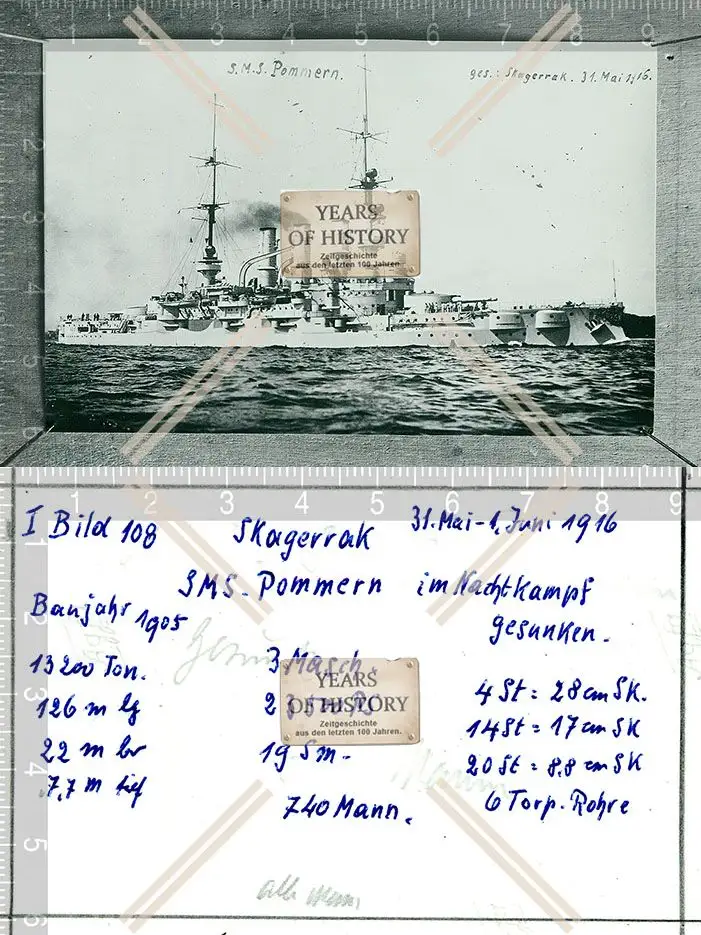 S.M.S. Pommern.
ges.: Skagerrak. 31. Mai 1916.
YEARS
OF HISTORY
Zeitgeschichte
aus den letzten 100 Jahren.
I Bild 108 Skagerrak 31. Mai - 1. Juni 1916
SMS. Pommern im Nachtkampf
gesunken.
Baujahr 1905
13200 Ton. 3 Masch.
126 m lg
22 m br 19 Sm.
7,7 m tief
740 Mann.
4 St = 28 cm SK.
14 St = 17 cm SK
20 St = 8,8 cm SK
6 Torp. Rohre
YEARS
OF HISTORY
Zeitgeschichte
aus den letzten 100 Jahren.